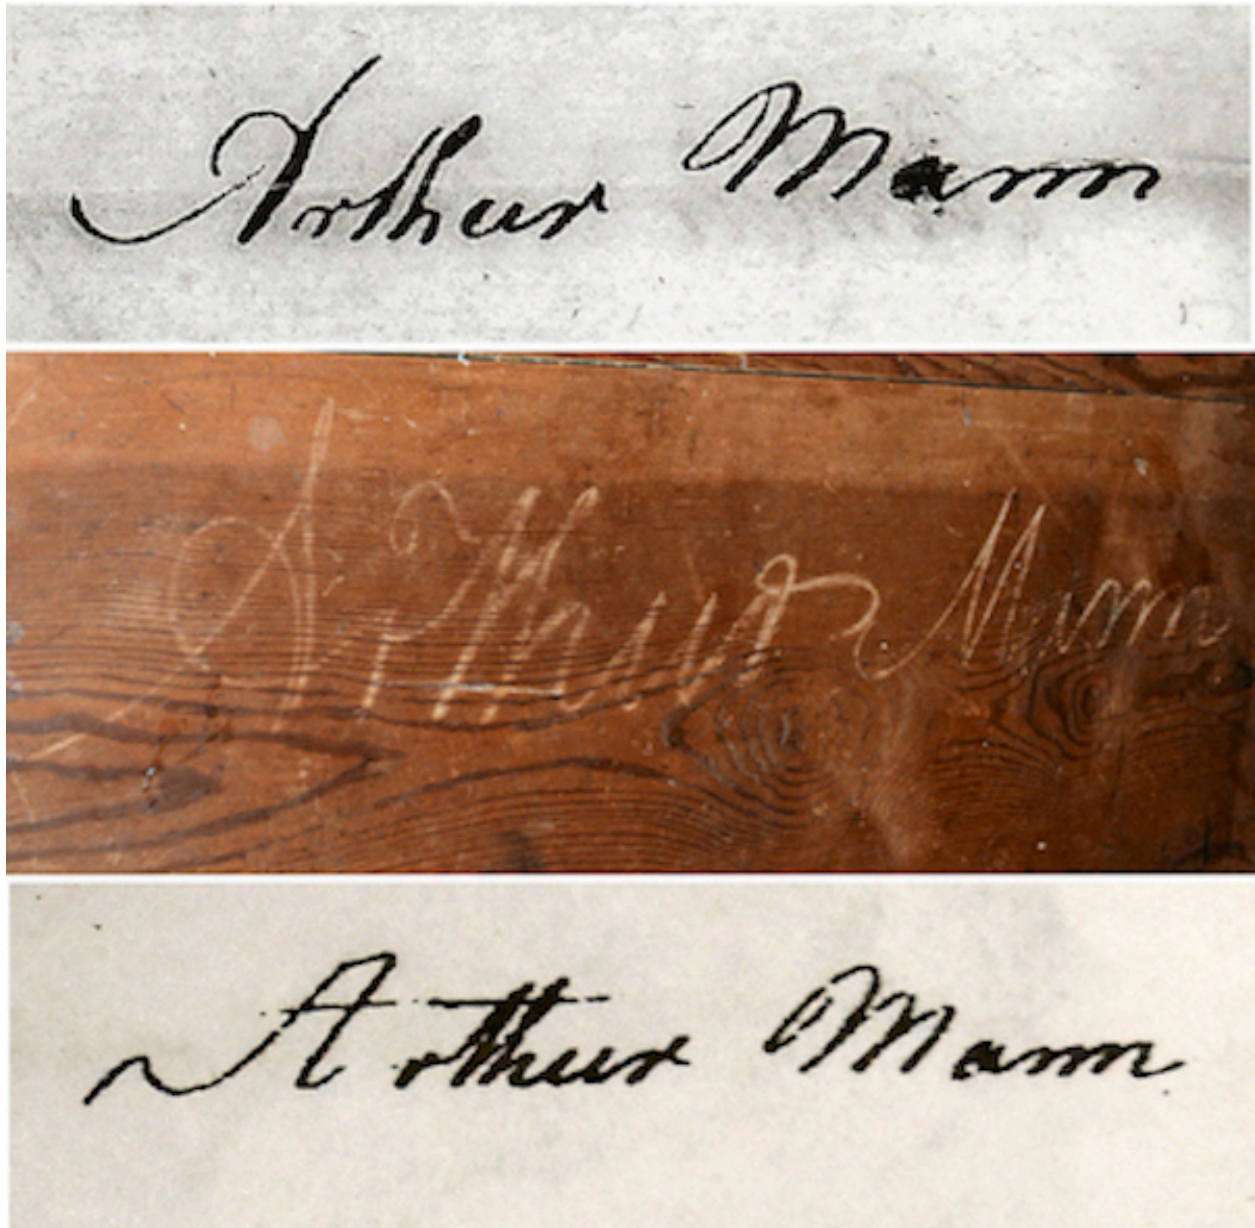 Arthur Mann
Arthur Mann
Arthur Mann